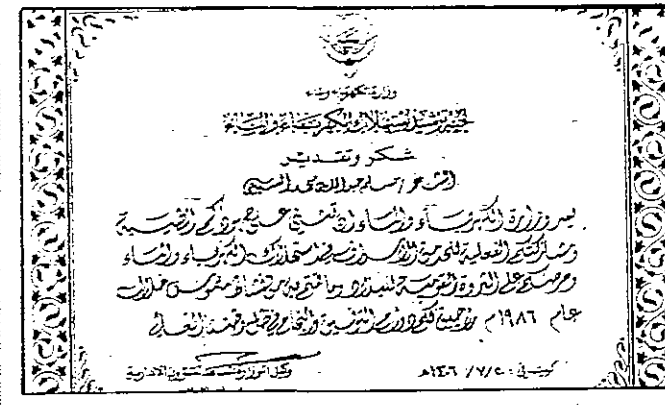 وزارة الكهرباء والماء
لجنة ترشيد استهلاك الكهرباء والماء
شكر وتقدير
الشاعر / سالم عبدالله محمد
يسر وزارة الكهرباء والماء أن تثني على جهودكم الطيبة
ومشاركتكم الفعلية للحد من الإسراف في استهلاك الكهرباء والماء
وحرصكم على الثروة القومية للبلاد وما قمتم به من نشاط ملموس خلال
عام ١٩٨٦م
وكيل الوزارة الإدارية
الكويت في: ٢٠/٧/١٤٠٦هـ